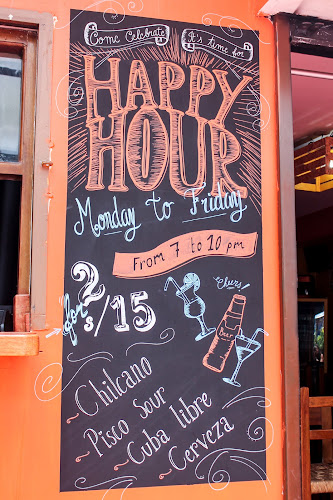 Come Celebrate
It's time for
HAPPY
HOUR
Monday to Friday
From 7 to 10 pm
2 for S/15
Cheers!
Beer
- Chilcano
- Pisco Sour
- Cuba libre
- Cerveza